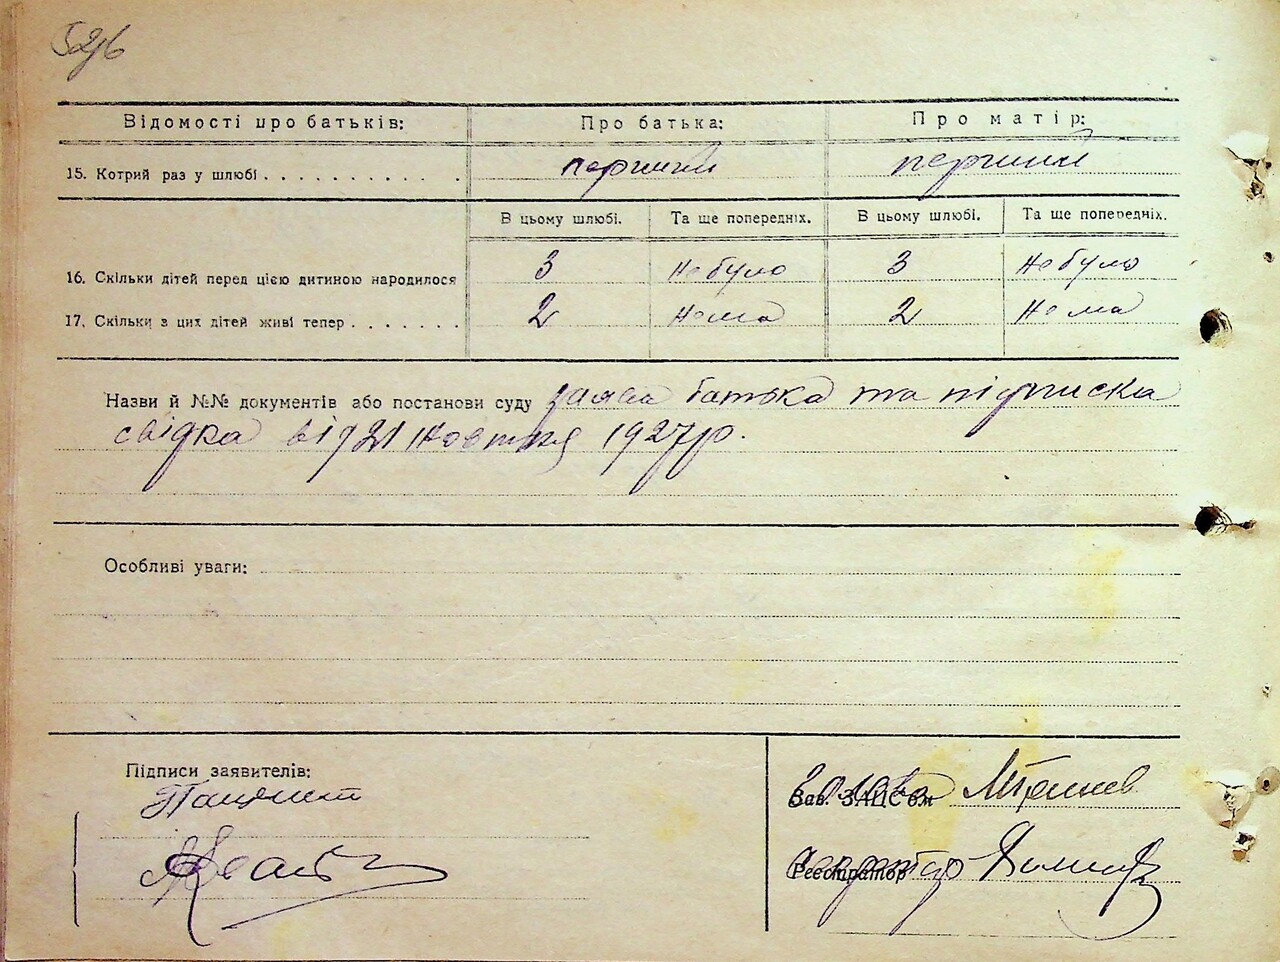 526
Відомості про батьків: Про батька: Про матір:
15. Котрий раз у шлюбі . . . . . . . . . . . перший перший
В цьому шлюбі. Та ще попередніх. В цьому шлюбі. Та ще попередніх.
16. Скільки дітей перед цією дитиною народилося 3 не було 3 не було
17. Скільки з цих дітей живі тепер . . . . . . . 2 нема 2 нема
Назви й №№ документів або постанови суду заява батька та підписка
свідка від 21 жовтня 1927 р.
Особливі уваги:
Підписи заявителів:
Голова
Зав. ЗАЦС'ом
Секретар
Реєстратор